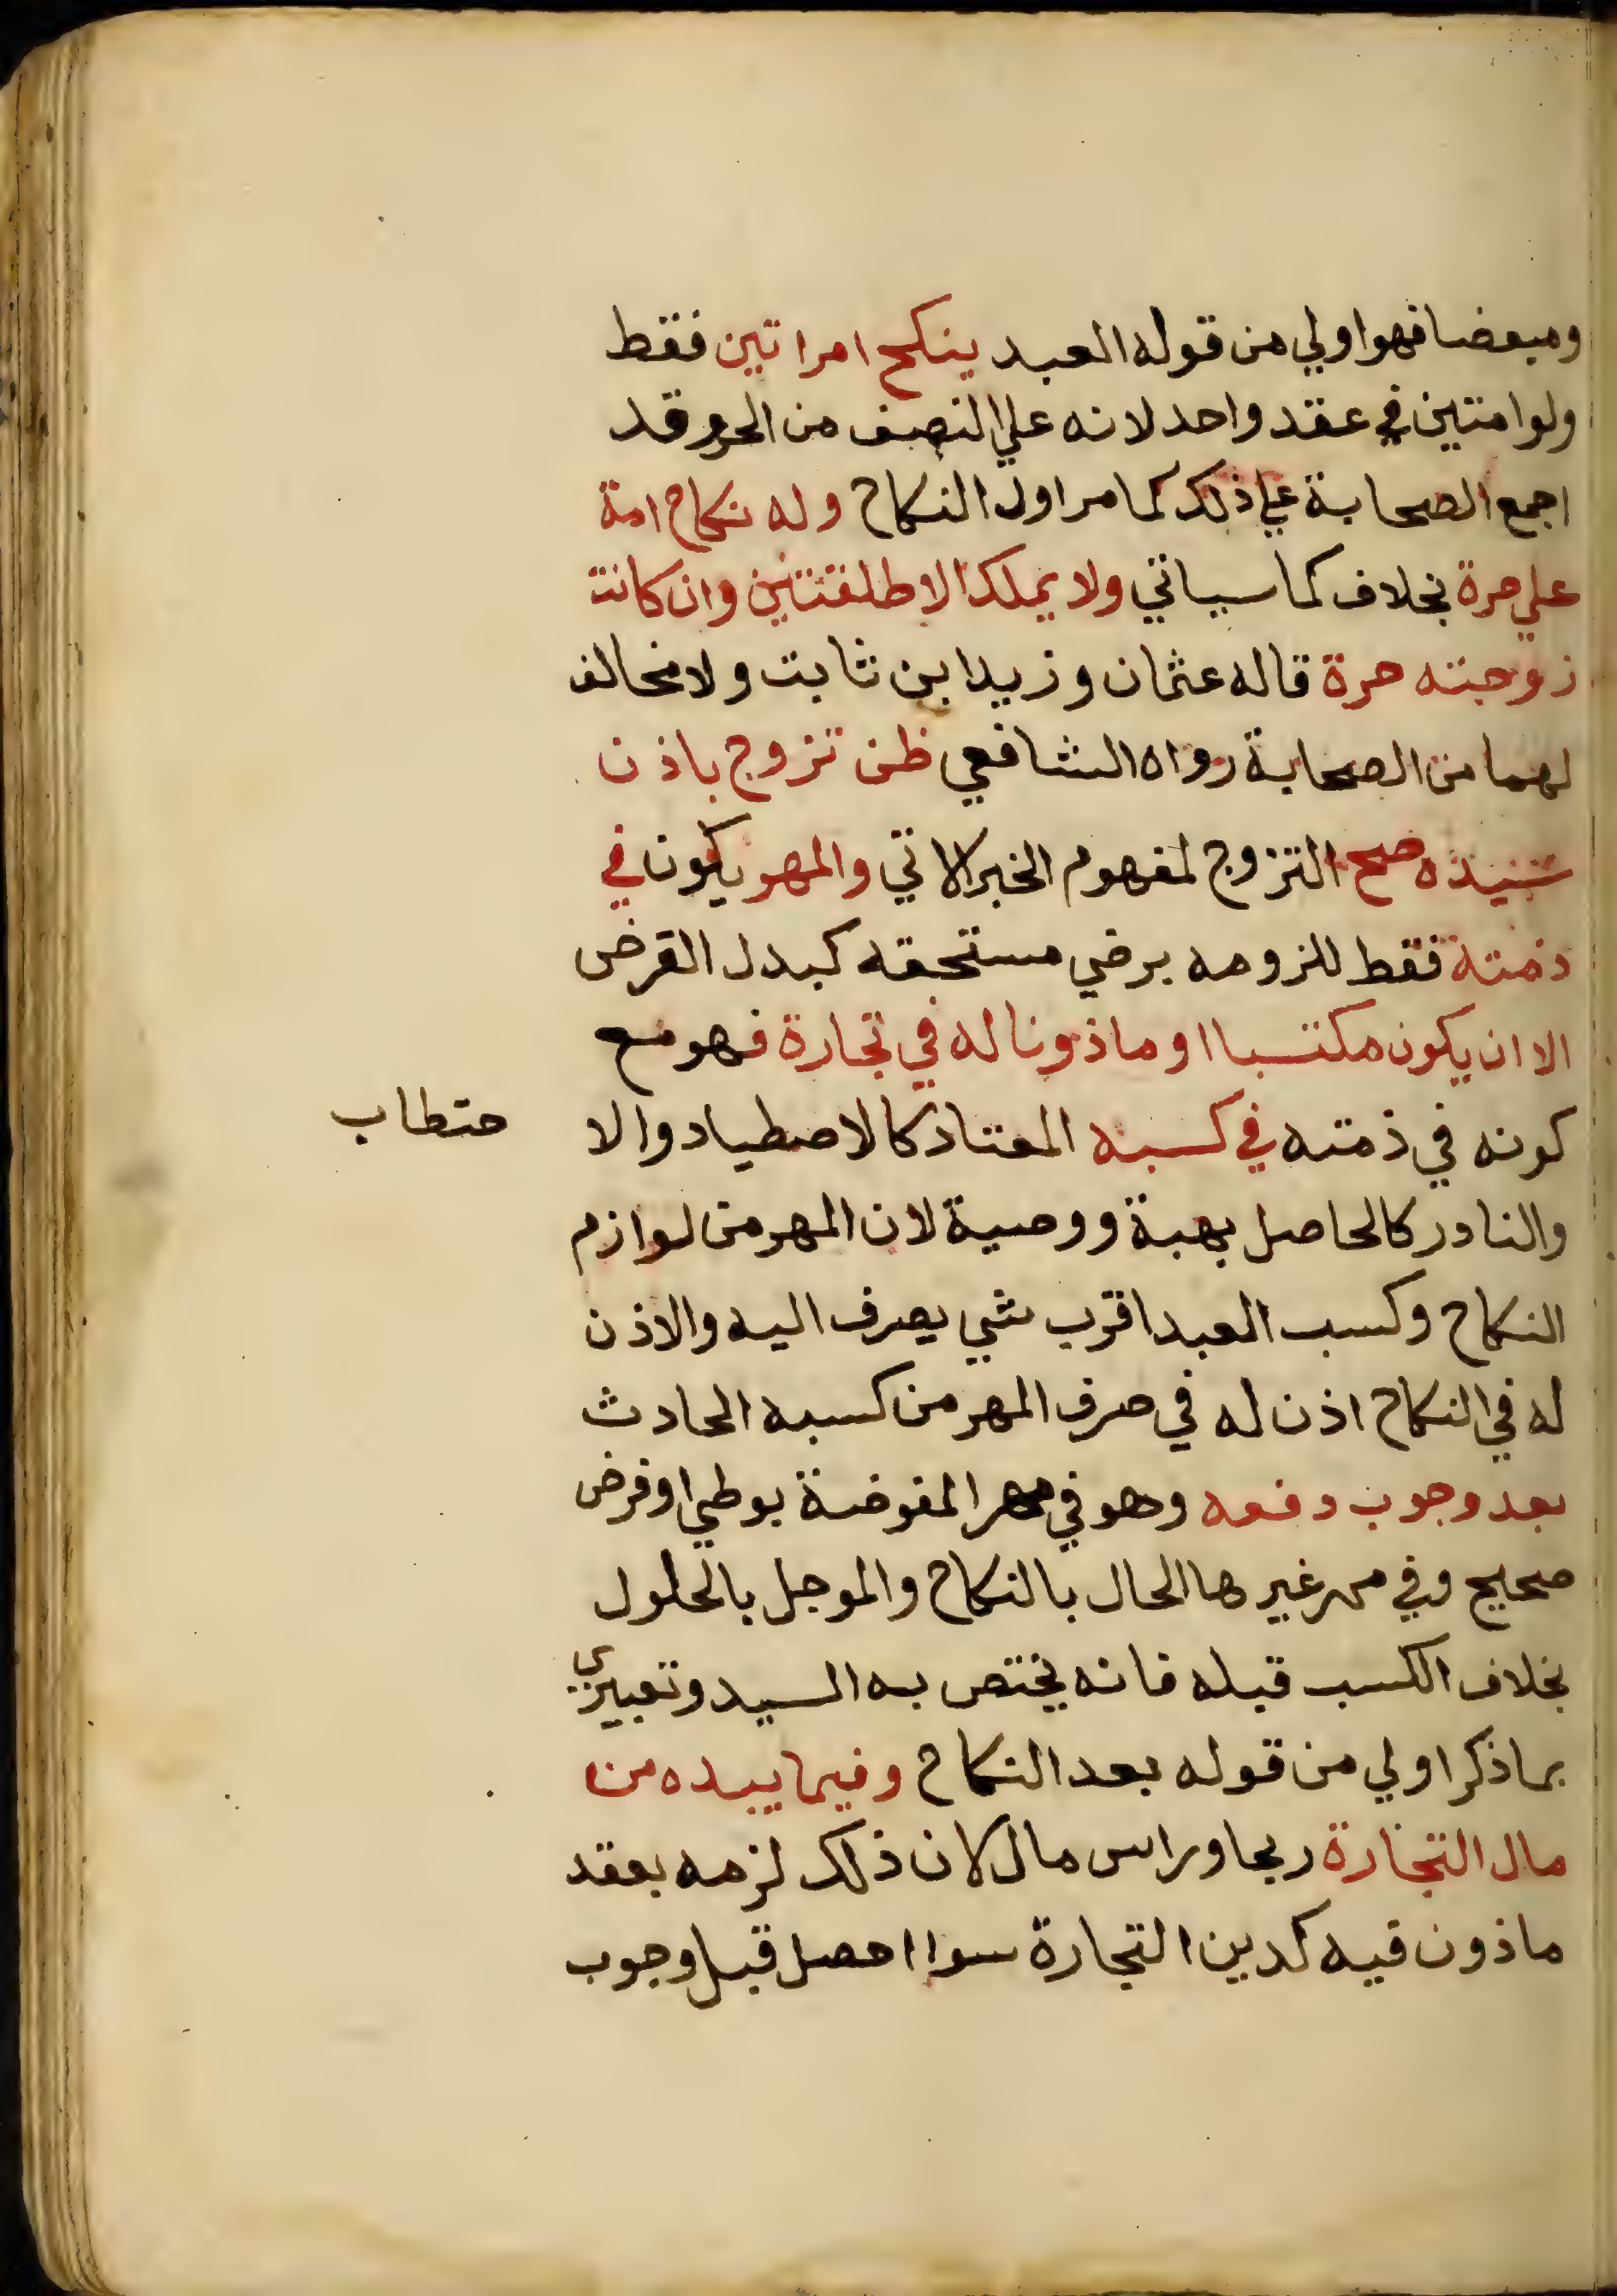 ومبعضا فهو اولي من قوله العبد ينكح امراتين فقط
ولوامتين في عقد واحد لانه علي النصف من الحر وقد
اجمع الصحابة علي ذلك كما مر اول النكاح وله نكاح امة
علي حرة بخلاف كما سياتي ولا يملك الا طلقتين وان كانت
زوجته حرة قاله عثمان وزيد ابن ثابت ولا مخالف
لهما من الصحابة رواه الشافعي ظن تزوج باذن
سيده صح التزوج لمفهوم الخبر الاتي والمهر يكون في
ذمته فقط للزومه برضي مستحقه كبدل القرض
الا ان يكون مكتسبا او ماذونا له في تجارة فهو مع
كونه في ذمته في كسبه المعتاد كالاصطياد والا حتطاب
والنادر كالحاصل بهبة ووصية لان المهر من لوازم
النكاح وكسب العبد اقرب شي يصرف اليه والاذن
له في النكاح اذن له في صرف المهر من كسبه الحادث
بعد وجوب دفعه وهو في مهر المفوضة بوطي او فرض
صحيح وفي مهر غيرها الحال بالنكاح والموجل بالحلول
بخلاف الكسب قبله فانه يختص به السيد وتعبيري
بما ذكر اولي من قوله بعد النكاح وفيما بيده من
مال التجارة ربحا وراس مال لان ذلك لزمه بعقد
ماذون فيه كدين التجارة سواا حصل قبل وجوب